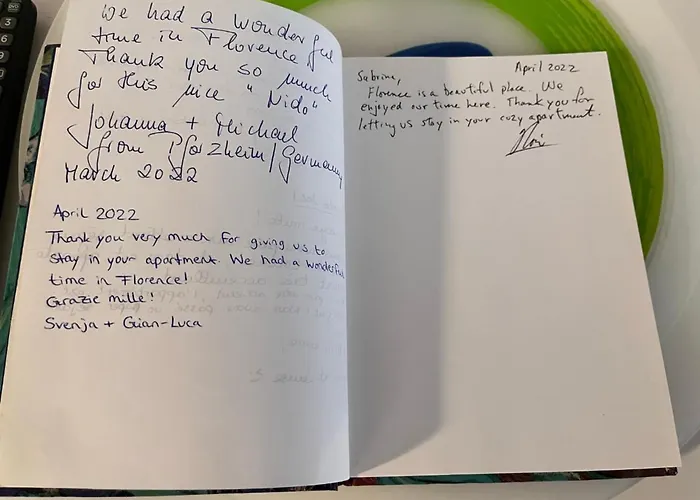 We had a wonderful
time in Florence
Thank you so much
for this nice "Nido"
Johanna + Michael
from Pforzheim/Germany
March 2022
April 2022
Thank you very much for giving us to
stay in your apartment. We had a wonderful
time in Florence!
Grazie mille!
Svenja + Gian-Luca
April 2022
Sabrina,
Florence is a beautiful place. We
enjoyed our time here. Thank you for
letting us stay in your cozy apartment.